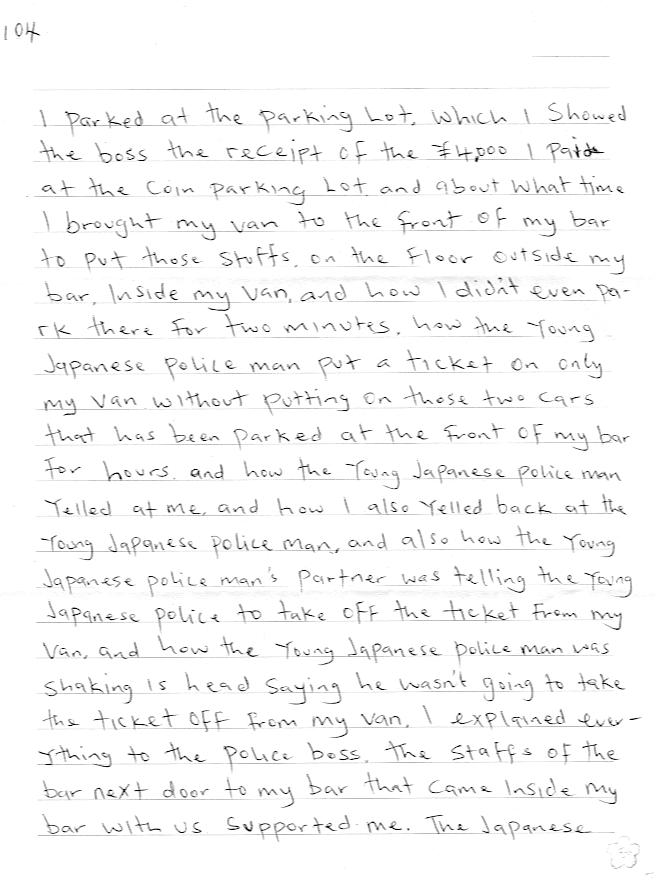 104
I parked at the parking Lot, which I Showed
the boss the receipt of the ¥4,000 I paid
at the Coin parking Lot and about what time
I brought my van to the front of my bar
to put those stuffs, on the Floor outside my
bar, Inside my van, and how I didn't even pa-
rk there for two minutes, how the Young
Japanese police man put a ticket on only
my van without putting on those two cars
that has been parked at the front of my bar
for hours, and how the Young Japanese police man
Yelled at me, and how I also Yelled back at the
Young Japanese police man, and also how the Young
Japanese police man's Partner was telling the Young
Japanese police to take off the ticket from my
van, and how the Young Japanese police man was
shaking is head saying he wasn't going to take
the ticket off from my van, I explained ever-
ything to the police boss, the staffs of the
bar next door to my bar that came Inside my
bar with us supported me. The Japanese